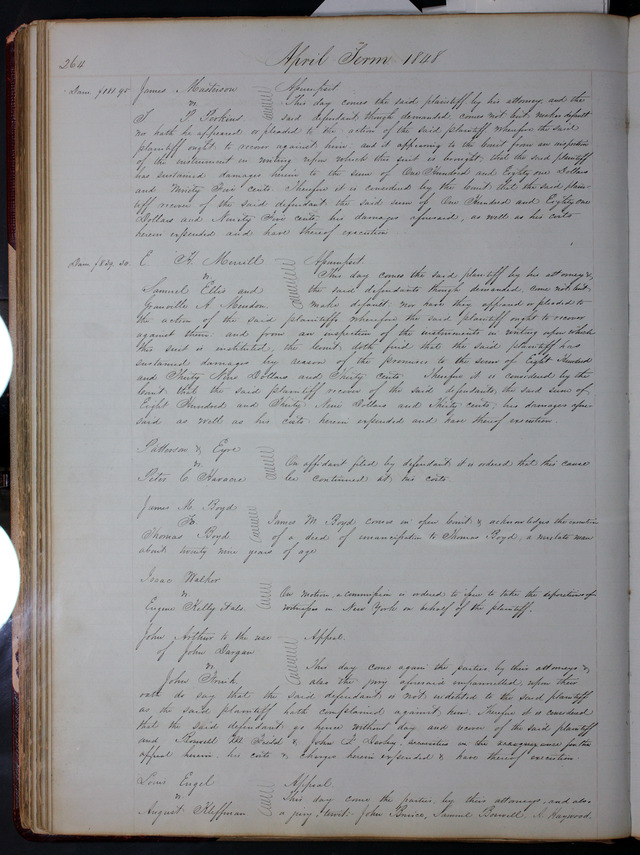 264
April Term 1848
Dam $181.95 James Masterson Assumpsit
vs This day comes the said plaintiff by his attorney, and the
T P Perkins said defendant though demanded comes not but makes default
no hath he appeared or pleaded to the action of the said plaintiff wherefore the said
plaintiff ought to recover against him and it appearing to the Court from an inspection
of the instrument in writing upon which this suit is brought, that the said plaintiff
has sustained damages herein to the sum of One Hundred and Eighty one Dollars
and Ninety Five cents. Therefore it is considered by the Court that the said plain-
tiff recover of the said defendant the said sum of One Hundred and Eighty one
Dollars and Ninety Five cents, his damages aforesaid, as well as his costs
herein expended and have thereof execution.
Dam $839.30 E. H. Merrill Assumpsit
vs This day comes the said plaintiff by his attorney &
Samuel Ellis and the said defendants though demanded, come not but
Granville A make default nor have they appeared or pleaded to
the action of the said plaintiff, wherefore the said plaintiff ought to recover
against them and from an inspection of the instruments in writing upon which
this suit is instituted, the Court doth find that the said plaintiff has
sustained damages by reason of the premises to the sum of Eight Hundred
and Thirty Nine Dollars and Thirty cents. Therefore it is considered by the
Court that the said plaintiff recover of the said defendants, the said sum of
Eight Hundred and Thirty Nine Dollars and Thirty cents, his damages afore-
said as well as his costs herein expended and have thereof execution.
Patterson & Eyre
vs On affidavit filed by defendant, it is ordered that this cause
Peter C be continued at his costs.
James M. Boyd
To James M. Boyd comes in open Court & acknowledges the execution
Thomas Boyd of a deed of emancipation to Thomas Boyd, a mulatto man
about twenty nine years of age
Isaac Walker
vs On motion, a commission is ordered to issue to take the depositions of
Eugene Kelly et als. witnesses in New York on behalf of the plaintiff.
John Arthur to the use Appeal.
of John Dargan
vs This day come again the parties by their attorneys &
John also the jury aforesaid impannelled, upon their
oath do say that the said defendant is not indebted to the said plaintiff
as the said plaintiff hath complained against him. Therefore it is considered
that the said defendant go hence without day and recover of the said plaintiff
and & John securities in the recognizance for the
appeal herein his costs & charges herein expended & have thereof execution
Louis Engel Appeal.
vs This day came the parties, by their attorneys, and also
August Kleffman a jury, towit: John Bruce, Samuel A. Haywood,